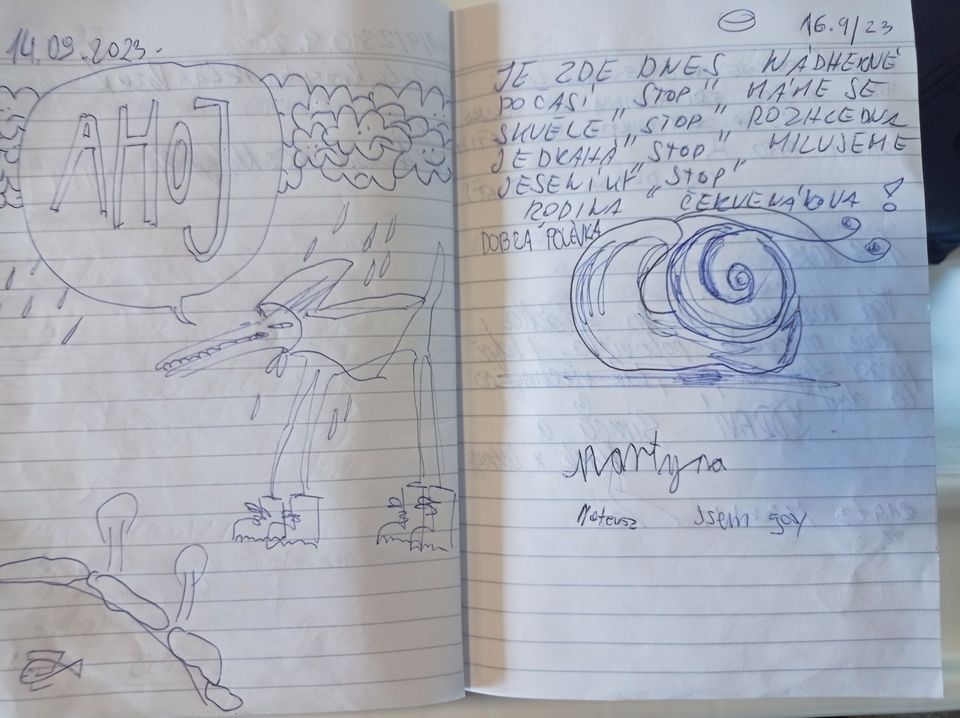 14.09.2023.
AHOJ
16.9/23
JE ZDE DNES NÁDHERNÉ
POČASÍ "STOP" MÁME SE
SKVĚLE "STOP" ROZHLEDNA
JE DRAHÁ "STOP" MILUJEME
JESENÍKY "STOP"
RODINA ČERVENÁKOVA!
DOBRÁ POLÉVKA
Martyna
Mateusz Jsem gay